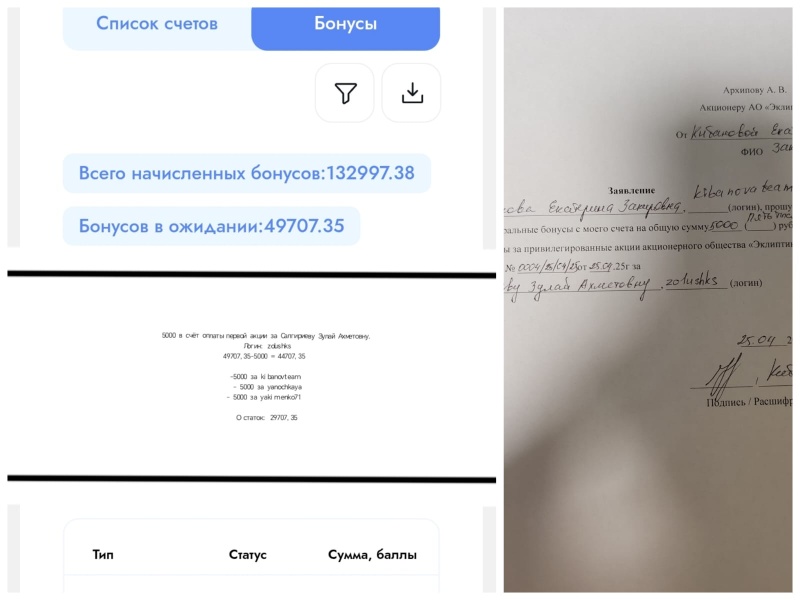 Список счетов
Бонусы
Всего начисленных бонусов:132997.38
Бонусов в ожидании:49707.35
5000 в счёт оплаты первой акции за Салгириеву Зулай Ахметовну.
Логин: zolushks
49707,35-5000 = 44707,35
-5000 за kibanovteam
- 5000 за yanochkaya
- 5000 за yakimenko71
Остаток: 29707,35
Тип
Статус
Сумма, баллы
Архипову А. В.
Акционеру АО «Экли
От
ФИО
Заявление
kibanovateam
(логин), прошу
ральные бонусы с моего счета на общую сумму 5000 ( ) руб
ы за привилегированные акции акционерного общества «Эклипти
№ 0004/25/04/25 от 25.04.25г за
ву Зулай Ахметовну, zolushks (логин)
25.04
Подпись / Расшифр